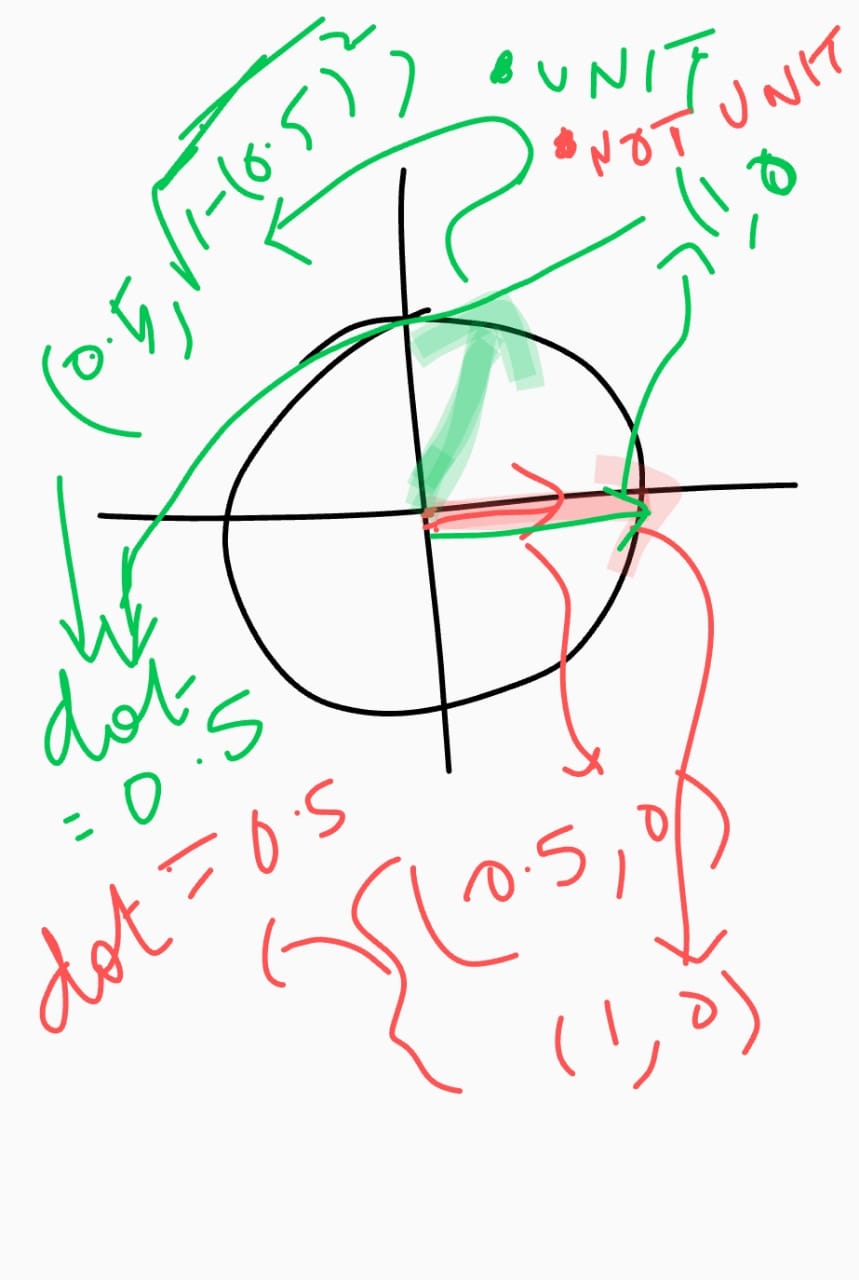 • UNIT
• NOT UNIT
(1, 0
(0.5, √1-(0.5)²)
dot
= 0.5
dot = 0.5
(0.5, 0)
(1, 0)